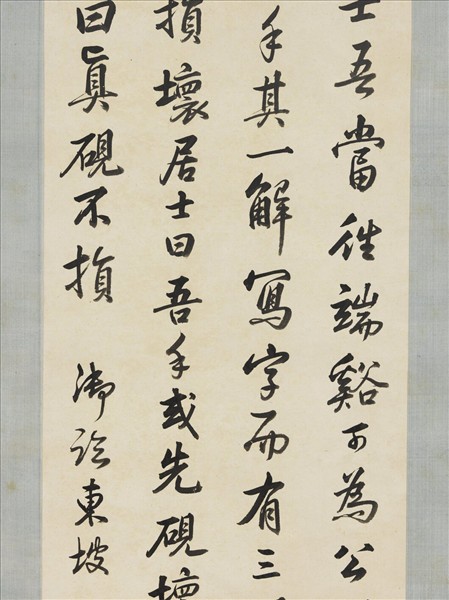 士吾當往端谿可為公
手其一解寫字而有三
損壞居士曰吾手或先硯壞
曰真硯不損 御論東坡